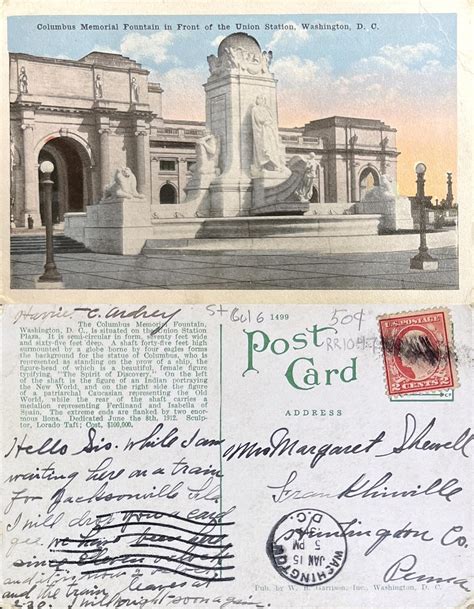 Columbus Memorial Fountain in Front of the Union Station, Washington, D. C.
Harriet C.
St Col 6
1499
50¢
The Columbus Memorial Fountain,
Washington, D. C., is situated on the Union Station
Plaza. It is semi-circular in form, seventy feet wide
and sixty-five feet deep. A shaft forty-five feet high
surmounted by a globe borne by four eagles forms
the background for the statue of Columbus, who is
represented as standing on the prow of a ship, the
figure-head of which is a beautiful, female figure
typifying, "The Spirit of Discovery." On the left
of the shaft is the figure of an Indian portraying
the New World, and on the right side the figure
of a patriarchal Caucasian representing the Old
World, while the rear of the shaft carries a
medallion representing Ferdinand and Isabella of
Spain. The extreme ends are flanked by two enor-
mous lions. Dedicated June the 8th, 1912. Sculp-
tor, Lorado Taft; Cost, $100,000.
Post Card
ADDRESS
2 CENTS 2
Hello Sis. while I am
waiting here on a train
for Jacksonville Fla
I will drop you a card
we have been here
since eleven o'clock
and the train leaves at
2.30. I will write soon again.
Mrs Margaret Shewell
Franklinville
Huntingdon Co.
Penna
WASHINGTON
D.C.
JAN 15
5 PM
Pub. by W. B. Garrison, Inc., Washington, D. C.